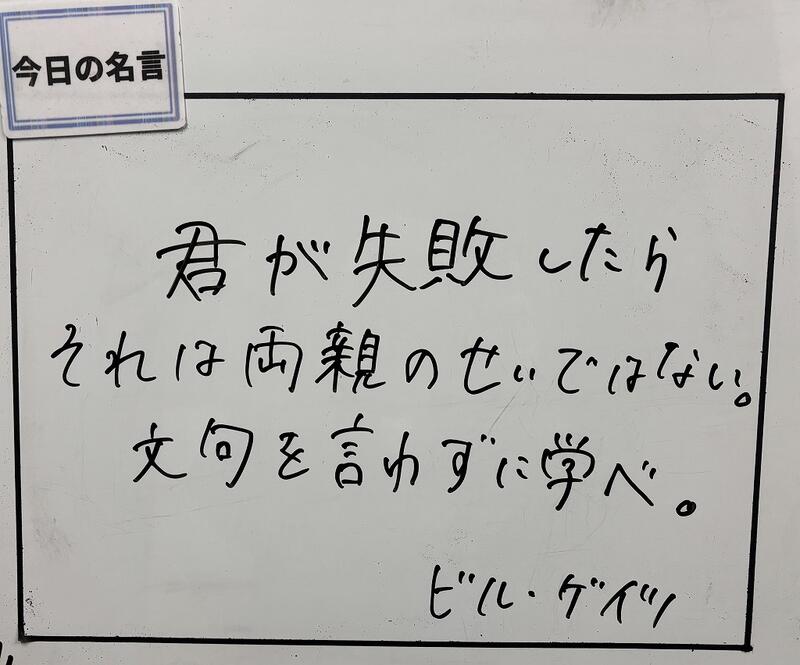 今日の名言
君が失敗したら
それは両親のせいではない。
文句を言わずに学べ。
ビル・ゲイツ